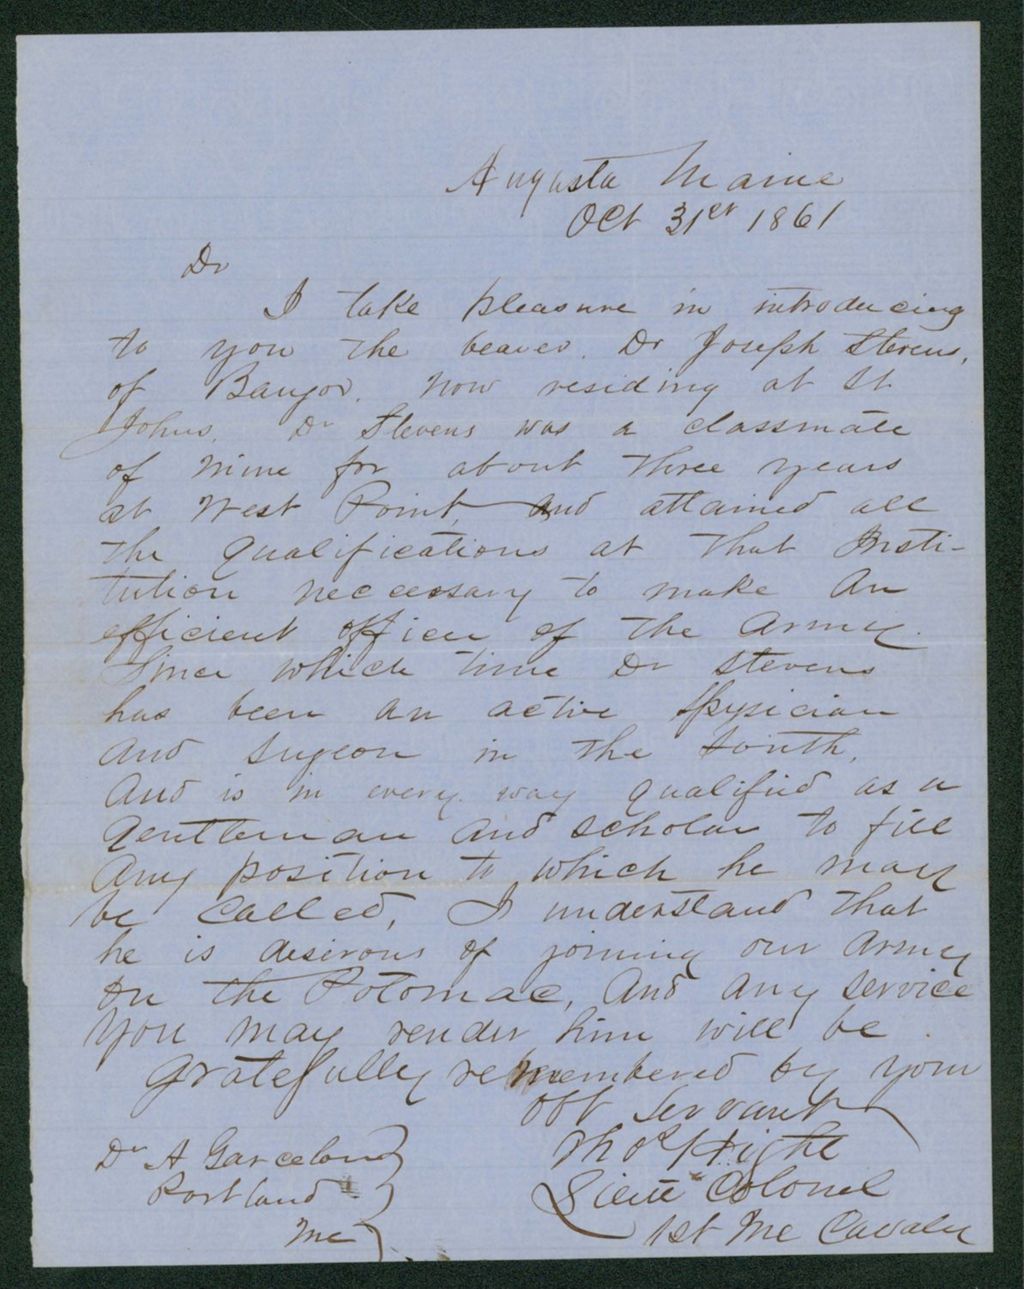 Augusta Maine
Oct 31st 1861
Dr
I take pleasure in introducing
to you the bearer. Dr Joseph Stevens,
of Bangor. now residing at St
Johns. Dr Stevens was a classmate
of mine for about three years
at West Point, and attained all
the qualifications at that Insti-
tution neccessary to make an
efficient officer of the Army.
Since which time Dr Stevens
has been an active Physician
and Surgeon in the South,
And is in every way qualified as a
Gentleman and scholar to fill
any position to which he may
be called, I understand that
he is desirous of joining our Army
on the Potomac, And any service
you may render him will be
gratefully remembered by your
obt servant
Thos Hight
Lieut Colonel
1st Me Cavalry
Dr A Garcelon
Portland
Me